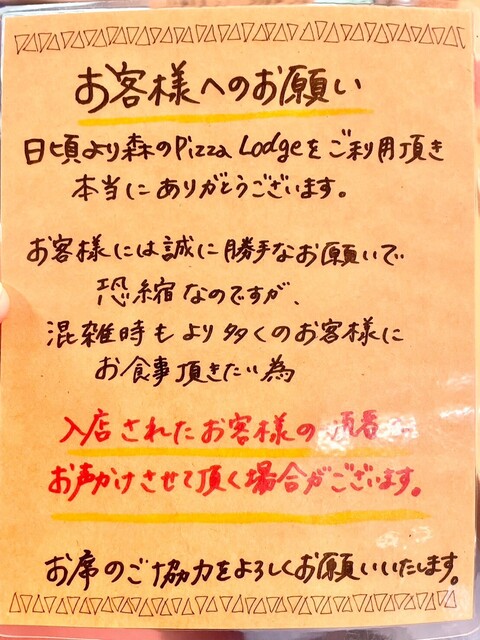 お客様へのお願い
日頃より森のPizza Lodgeをご利用頂き
本当にありがとうございます。
お客様には誠に勝手なお願いで
恐縮なのですが、
混雑時もより多くのお客様に
お食事頂きたい為
入店されたお客様の
お声かけさせて頂く場合がございます。
お席のご協力をよろしくお願いいたします。